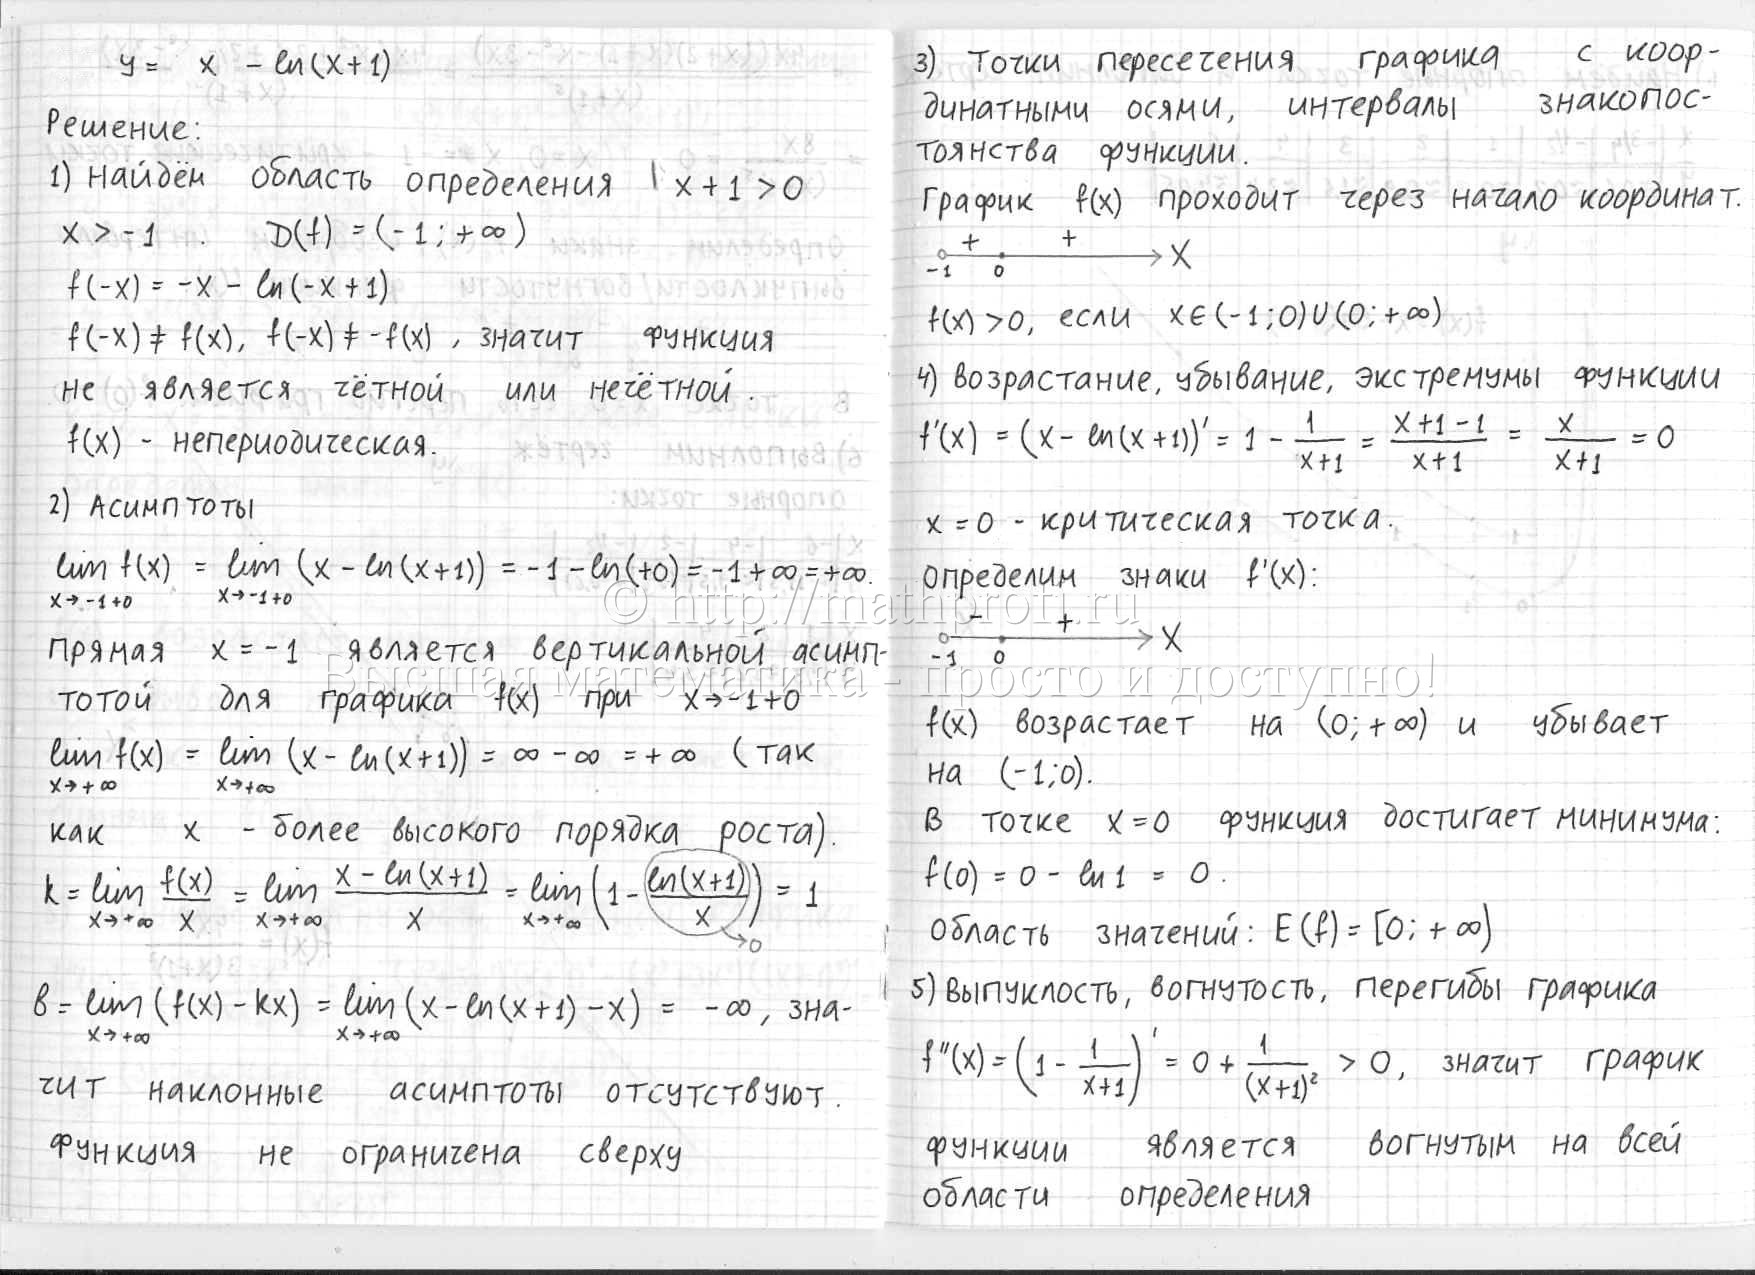 y = x - ln(x+1)
Решение:
1) Найдём область определения x+1>0
x>-1. D(f)=(-1;+∞)
f(-x) = -x - ln(-x+1)
f(-x) ≠ f(x), f(-x) ≠ -f(x), значит функция
не является чётной или нечётной.
f(x) - непериодическая.
2) Асимптоты
lim f(x) = lim (x - ln(x+1)) = -1 - ln(+0) = -1+∞ = +∞.
x→-1+0 x→-1+0
Прямая x = -1 является вертикальной асимп-
тотой для графика f(x) при x→-1+0
lim f(x) = lim (x - ln(x+1)) = ∞ - ∞ = +∞ (так
x→+∞ x→+∞
как x - более высокого порядка роста).
k = lim f(x)/x = lim (x - ln(x+1))/x = lim (1 - ln(x+1)/x) = 1
x→+∞ x→+∞ x→+∞ →0
b = lim (f(x) - kx) = lim (x - ln(x+1) - x) = -∞, зна-
x→+∞ x→+∞
чит наклонные асимптоты отсутствуют.
Функция не ограничена сверху
3) Точки пересечения графика с коор-
динатными осями, интервалы знакопос-
тоянства функции.
График f(x) проходит через начало координат.
+ + X
-1 0
f(x)>0, если x∈(-1;0)∪(0;+∞)
4) Возрастание, убывание, экстремумы функции
f'(x) = (x - ln(x+1))' = 1 - 1/(x+1) = (x+1-1)/(x+1) = x/(x+1) = 0
x = 0 - критическая точка.
Определим знаки f'(x):
- + X
-1 0
f(x) возрастает на (0;+∞) и убывает
на (-1;0).
В точке x=0 функция достигает минимума:
f(0) = 0 - ln1 = 0.
Область значений: E(f) = [0;+∞)
5) Выпуклость, вогнутость, перегибы графика
f''(x) = (1 - 1/(x+1))' = 0 + 1/(x+1)² > 0, значит график
функции является вогнутым на всей
области определения
© http://mathprofi.ru
Высшая математика - просто и доступно!